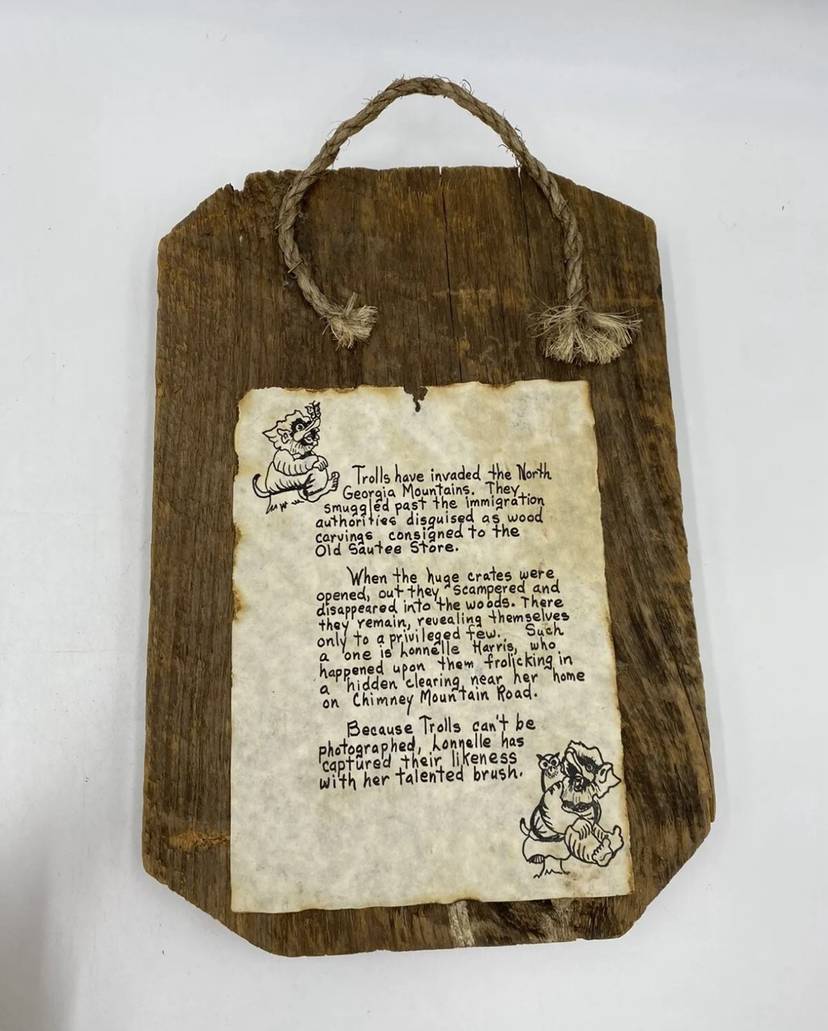 Trolls have invaded the North
Georgia Mountains. They
smuggled past the immigration
authorities disguised as wood
carvings consigned to the
Old Sautee Store.
When the huge crates were
opened, out they scampered and
disappeared into the woods. There
they remain, revealing themselves
only to a privileged few. Such
a one is Lonnelle Harris, who
happened upon them frolicking in
a hidden clearing near her home
on Chimney Mountain Road.
Because Trolls can't be
photographed, Lonnelle has
captured their likeness
with her talented brush.